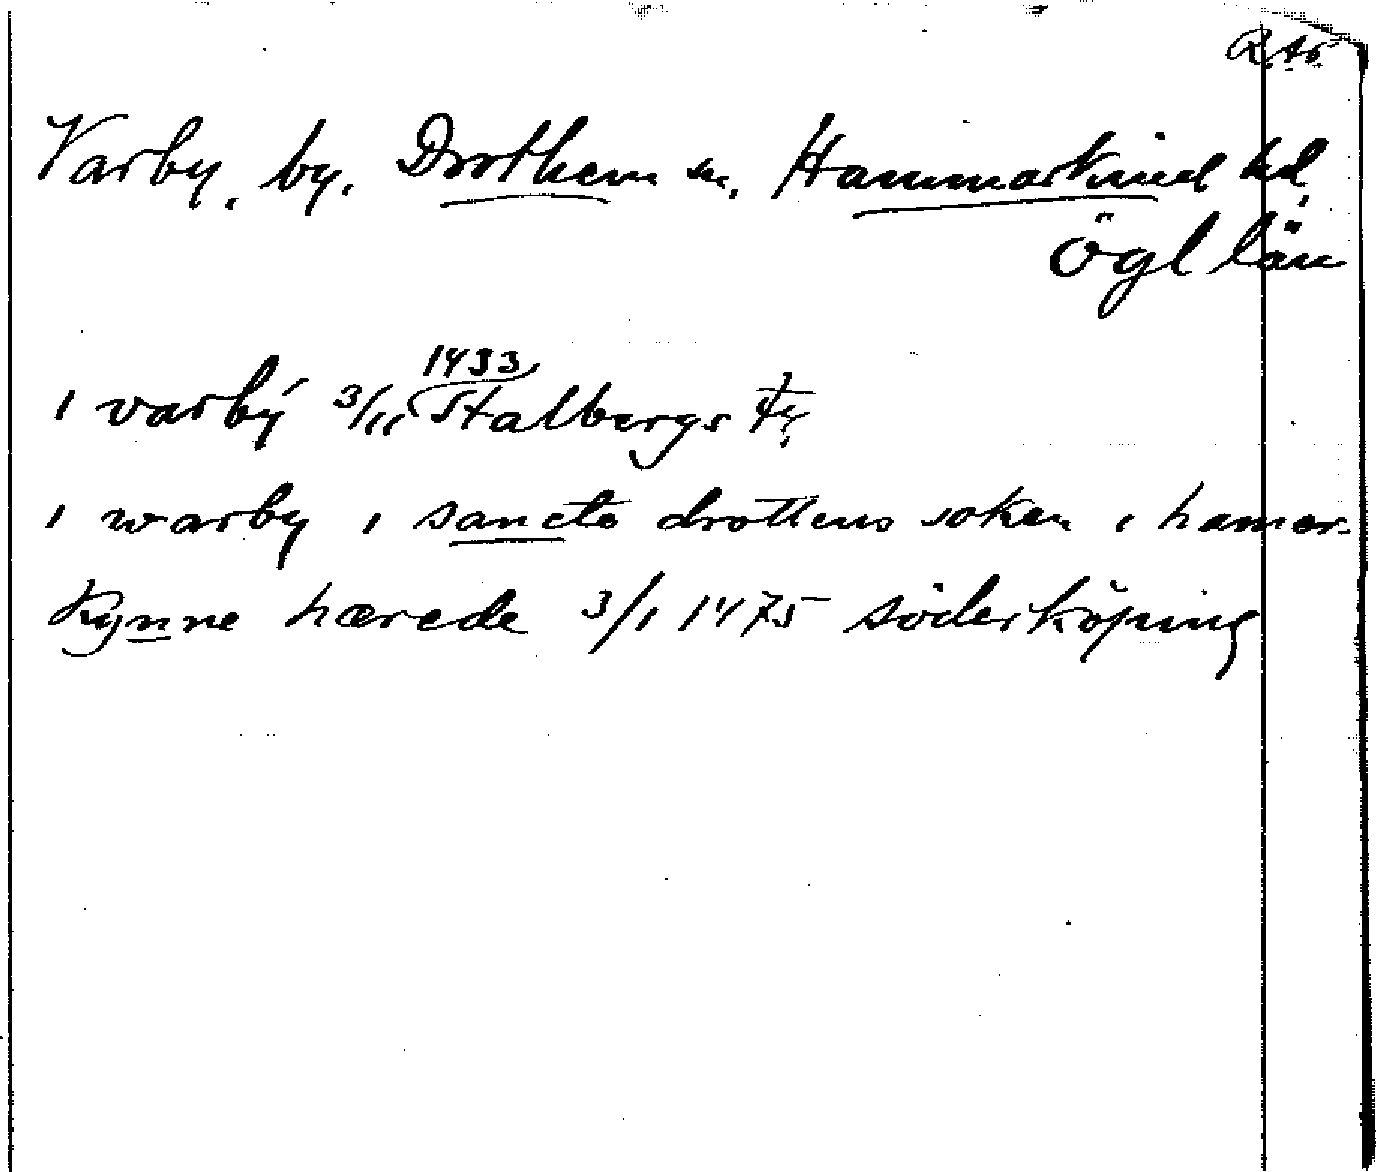 R.A.
Varby, by. Drothem sn, Hammarkind hd,
Ögl län
1433
i varbÿ 3/11 Stalbergs
i warby i sancte drottens soken i hamar-
kynne hærede 3/1 1475 söderköping